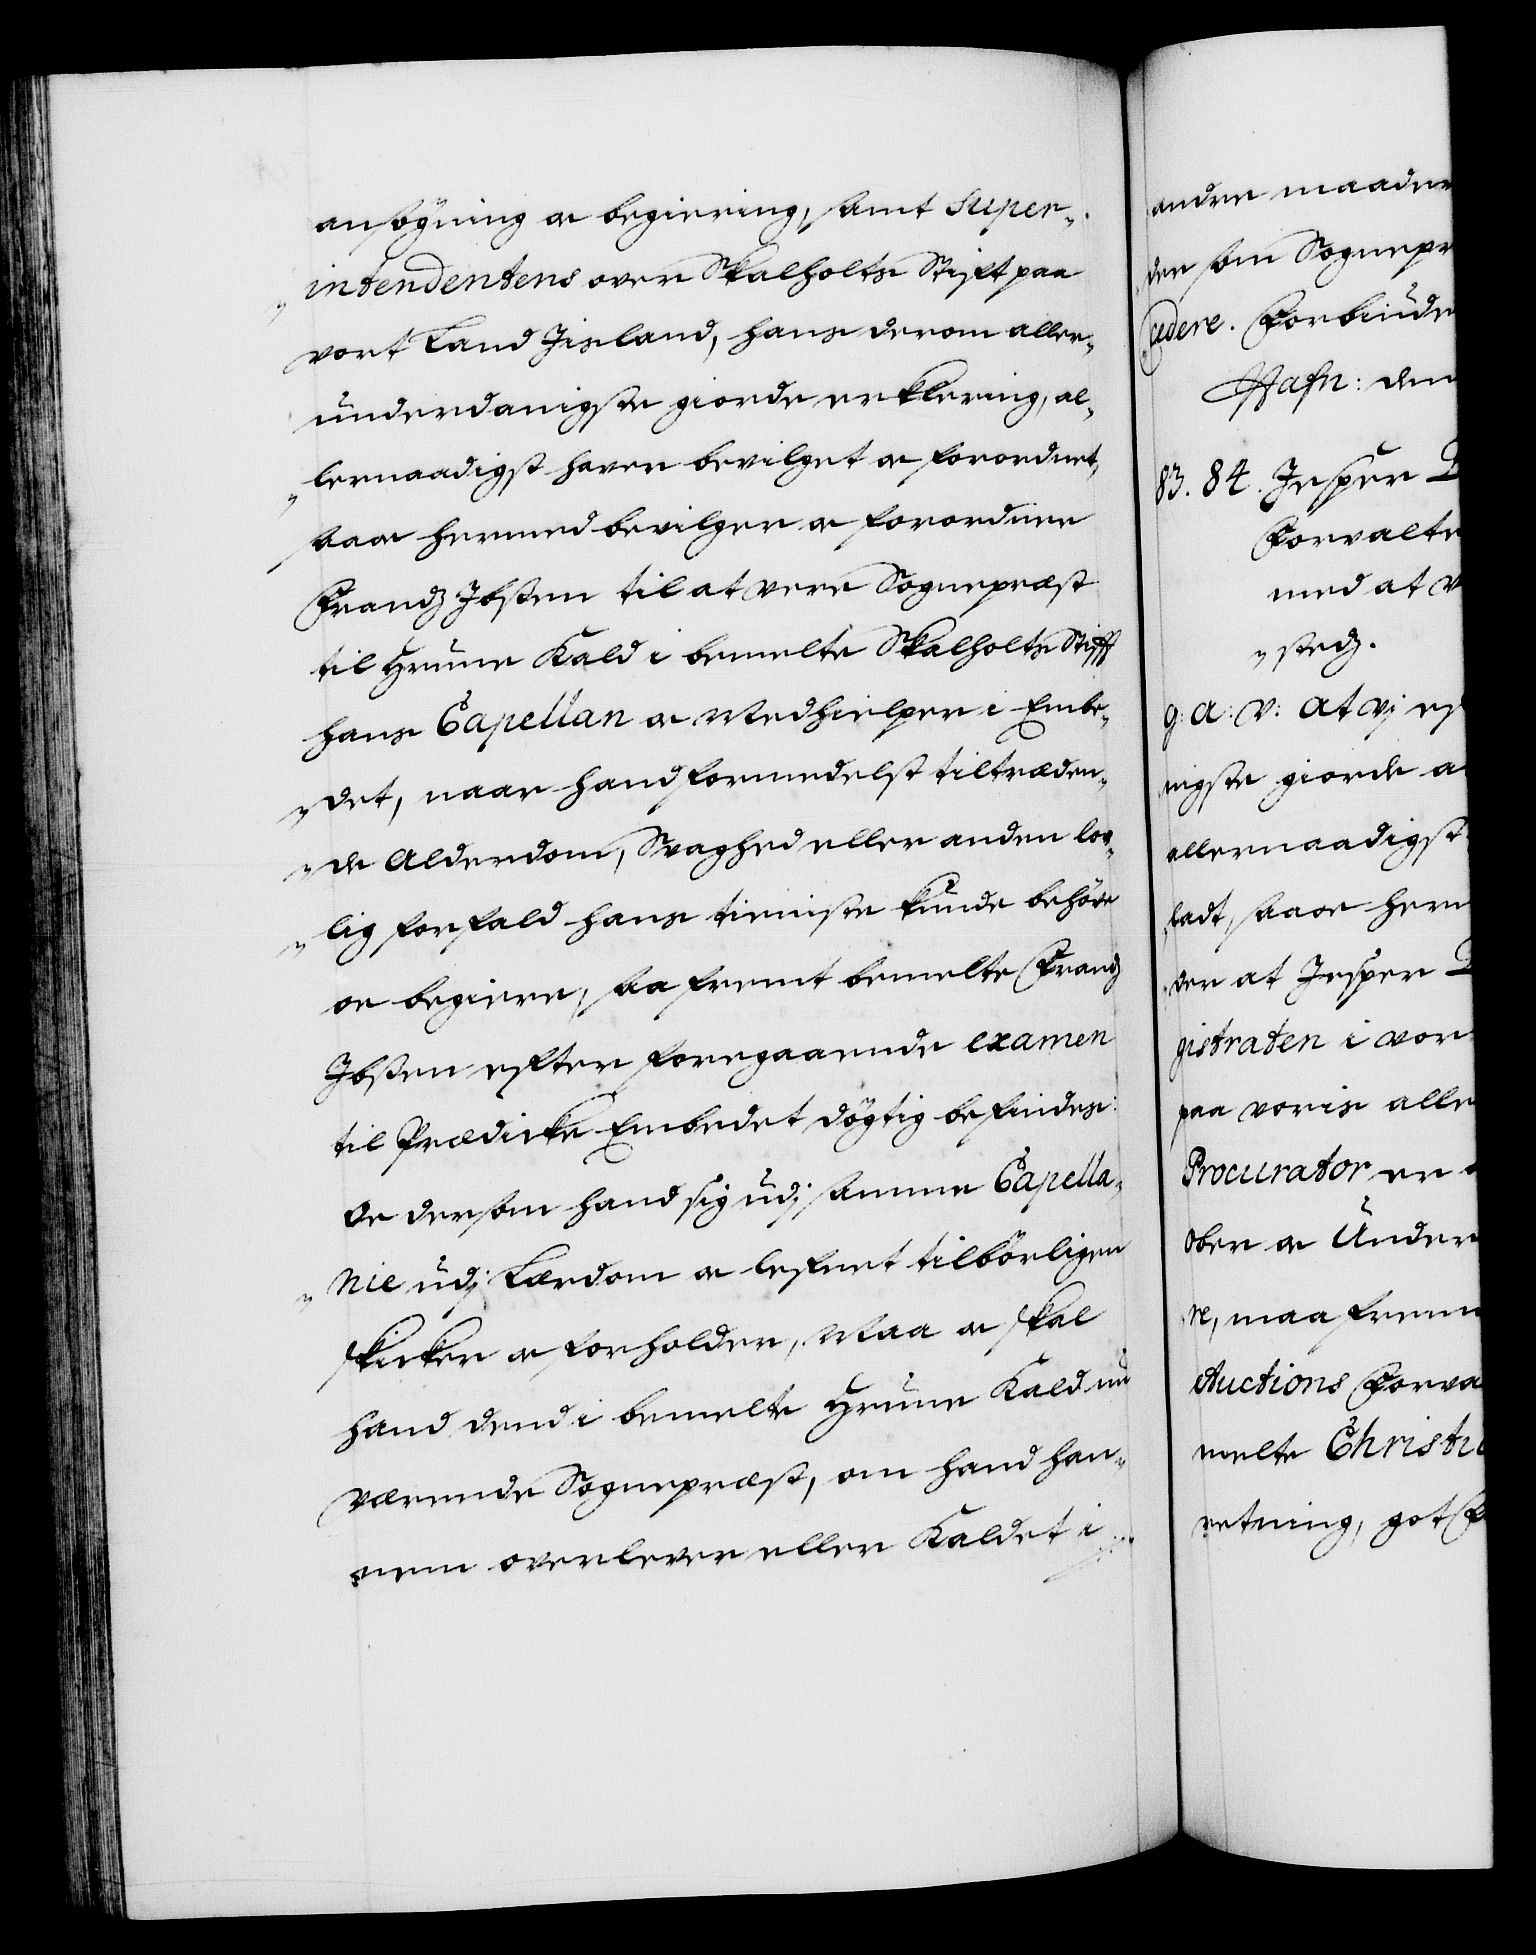 ansøgning og begiering, samt Super-
intendentens over Skalholts Stift paa
vort Land Jisland, hans derom aller-
underdanigste giorde erklering, al-
lernaadigst haver bevilget og forordnet,
saa og hermed bevilger og forordner
Frandz Jbsen til at vere Sognepræst
til Hrune Kald i bemelte Skalholts Stifft
hans Capellan og Medhielper i Embe-
det, naar hand formedelst tiltræden-
de Alderdom, Svaghed eller anden lov-
lig forfald hans tieniste kunde behøve
oc begiere, saa fremt bemelte Frandz
Jbsen efter foregaaende examen
til Prædicke Embedet dögtig befindes:
Oc dersom hand sig udj samme Capella-
nie udj Lærdom og lefnet tilbörligen
skicker og forholder, Maa og skal
hand dend i bemelte Hrune Kald nu
værende Sognepræst, om hand han-
nem overlever eller Kaldet i
andre maader
der som Sognepr
cedere. Forbiude
Hafn: den
83. 84. Jesper
Forvalte
med at v
steds.
g: a: v: at vj ef
nigste giorde a
allernaadigst
ladt, saa og herm
der at Jesper
gistraten i vor
paa voris alle
Procurator er
Ober og Under
re, maa frem
Auctions Forva
melte Christi
retning, got